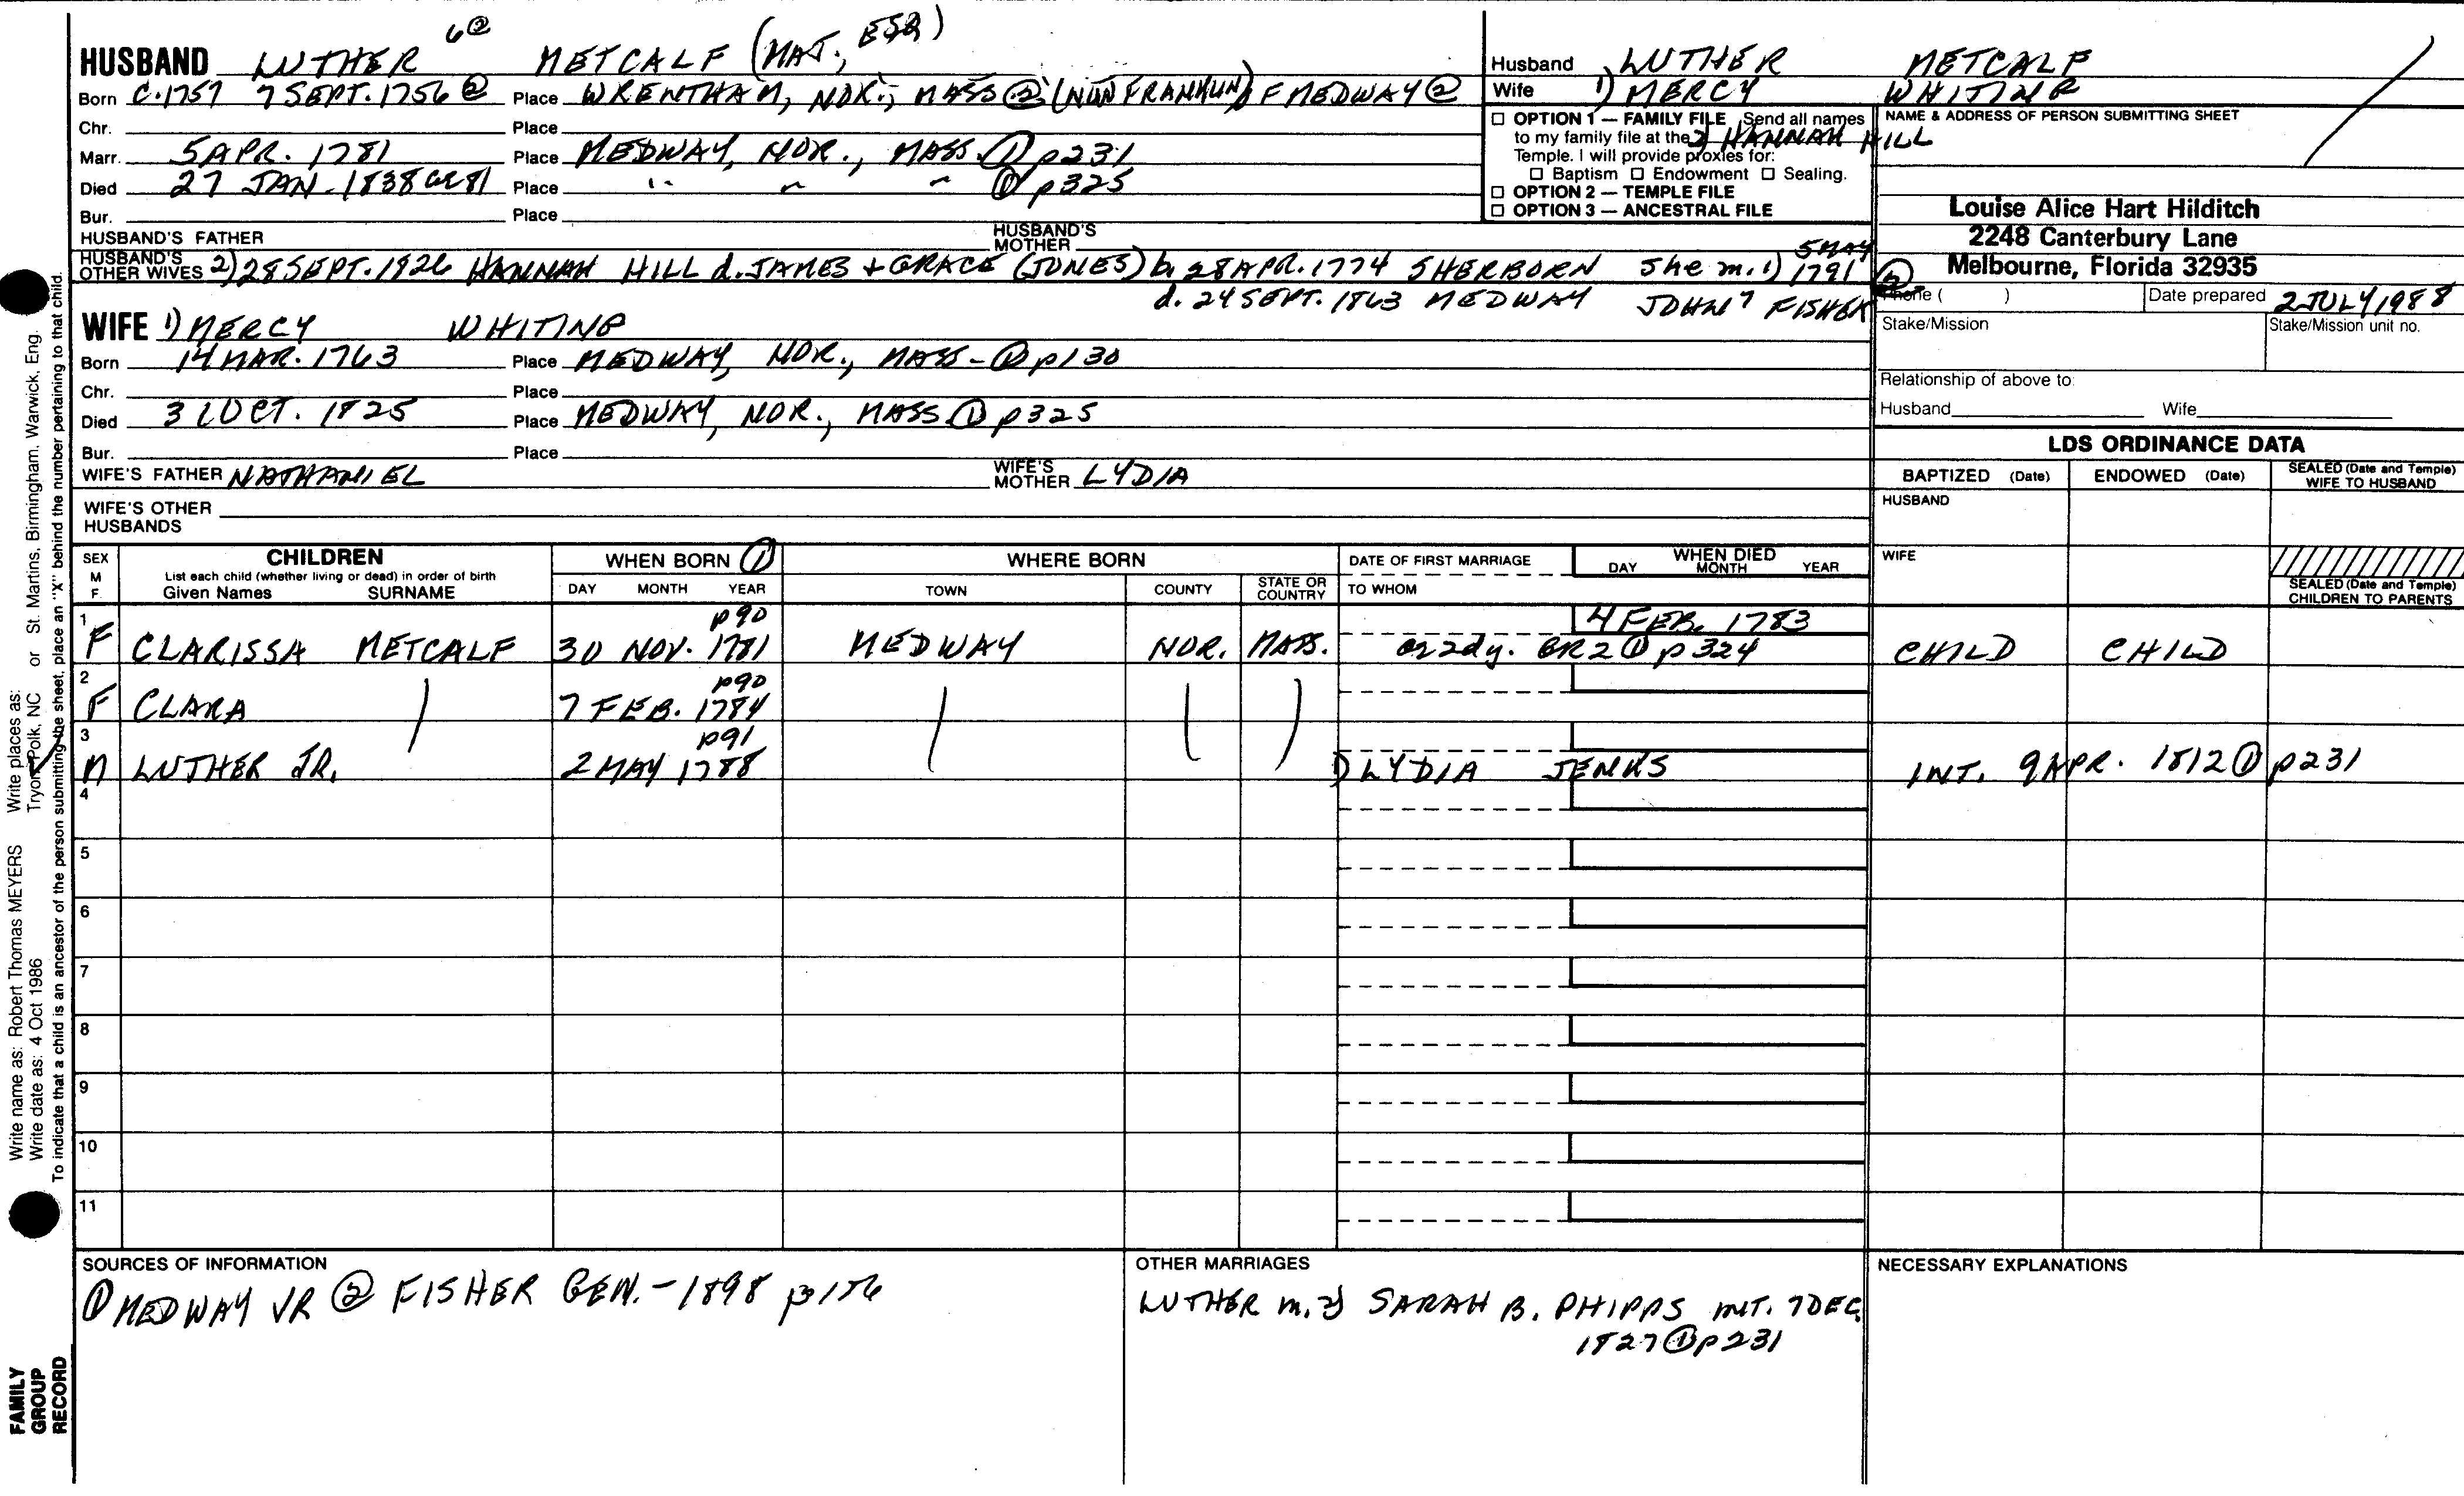 6②
HUSBAND LUTHER METCALF (MAJ., ESQ)
Born C.1757 7 SEPT. 1756 ② Place WRENTHAM, NOR., MASS ② (NOW FRANKLIN) F MEDWAY ②
Chr. Place
Marr. 5 APR. 1781 Place MEDWAY, NOR., MASS. ① p231
Died 27 JAN. 1838 ae 81 Place " " " ① p325
Bur. Place
HUSBAND'S FATHER HUSBAND'S MOTHER
HUSBAND'S OTHER WIVES 2) 28 SEPT. 1826 HANNAH HILL d. JAMES + GRACE (JONES) b. 28 APR. 1774 SHERBORN She m. 1) 5 MAY 1791 ②
d. 24 SEPT. 1863 MEDWAY JOHN 7 FISHER
WIFE 1) MERCY WHITING
Born 14 MAR. 1763 Place MEDWAY, NOR., MASS - ① p130
Chr. Place
Died 31 OCT. 1825 Place MEDWAY, NOR., MASS ① p325
Bur. Place
WIFE'S FATHER NATHANIEL WIFE'S MOTHER LYDIA
WIFE'S OTHER HUSBANDS
Husband LUTHER METCALF
Wife 1) MERCY WHITING
2) HANNAH HILL
☐ OPTION 1 — FAMILY FILE Send all names
to my family file at the
Temple. I will provide proxies for:
☐ Baptism ☐ Endowment ☐ Sealing.
☐ OPTION 2 — TEMPLE FILE
☐ OPTION 3 — ANCESTRAL FILE
NAME & ADDRESS OF PERSON SUBMITTING SHEET
Louise Alice Hart Hilditch
2248 Canterbury Lane
Melbourne, Florida 32935
Phone ( ) Date prepared 2 JULY 1988
Stake/Mission Stake/Mission unit no.
Relationship of above to:
Husband Wife
LDS ORDINANCE DATA
BAPTIZED (Date) ENDOWED (Date) SEALED (Date and Temple) WIFE TO HUSBAND
HUSBAND
WIFE
SEALED (Date and Temple) CHILDREN TO PARENTS
SEX M F. CHILDREN WHEN BORN ① WHERE BORN DATE OF FIRST MARRIAGE WHEN DIED
List each child (whether living or dead) in order of birth
Given Names SURNAME DAY MONTH YEAR TOWN COUNTY STATE OR COUNTRY TO WHOM DAY MONTH YEAR
p90 4 FEB. 1783
1 F CLARISSA METCALF 30 NOV. 1781 MEDWAY NOR. MASS. ae 2dy. GR2 ① p324 CHILD CHILD
p90
2 F CLARA 7 FEB. 1784
p91
3 M LUTHER JR. 2 MAY 1788 1) LYDIA JENKS INT. 9 APR. 1812 ① p231
4
5
6
7
8
9
10
11
SOURCES OF INFORMATION
① MEDWAY VR ② FISHER GEN. - 1898 p156
OTHER MARRIAGES
LUTHER m. 2) SARAH B. PHIPPS INT. 7 DEC.
1827 ① p231
NECESSARY EXPLANATIONS
Write name as: Robert Thomas MEYERS Write places as:
Write date as: 4 Oct 1986 Tryon, Polk, NC or St. Martins, Birmingham, Warwick, Eng.
To indicate that a child is an ancestor of the person submitting the sheet, place an "X" behind the number pertaining to that child.
FAMILY
GROUP
RECORD